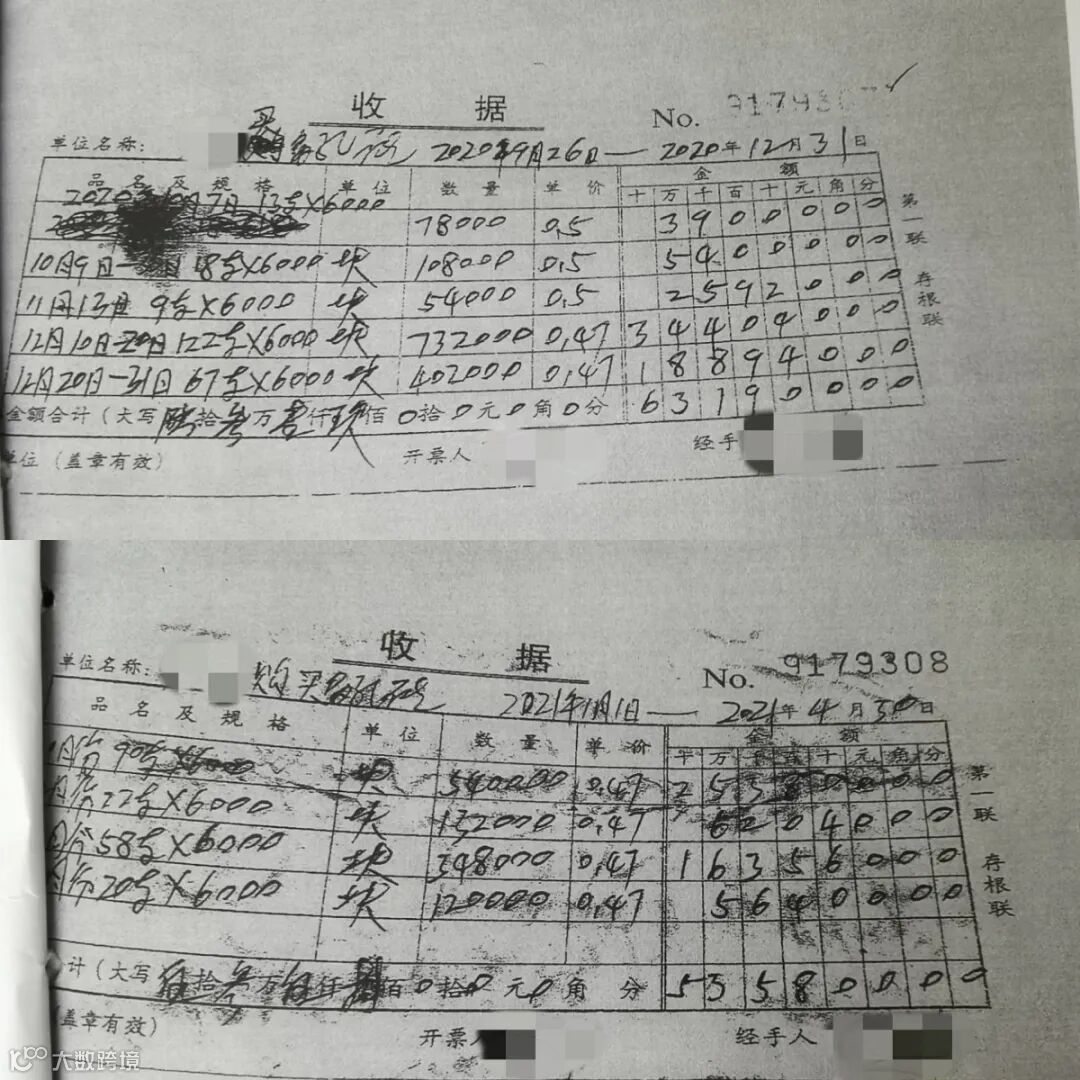 收 据 No. 9179307
单位名称: 购买多孔砖 2020年9月26日—2020年12月31日
品 名 及 规 格 单 位 数 量 单 价 金 额
十 万 千 百 十 元 角 分
2020年10月7日 13车×6000 78000 0.5 3 9 0 0 0 0 0
10月9日— 日 18车×6000 块 108000 0.5 5 4 0 0 0 0 0
11月13日 9车×6000 块 54000 0.5 2 5 9 2 0 0 0
12月10日-20日 122车×6000 块 732000 0.47 3 4 4 0 4 0 0 0
12月20日-31日 67车×6000 块 402000 0.47 1 8 8 9 4 0 0 0
金额合计(大写 陆拾叁万壹仟玖佰0拾0元0角0分 6 3 1 9 0 0 0 0
单位(盖章有效) 开票人 经手
第一联 存根联
收 据 No. 9179308
单位名称: 购买多孔砖 2021年1月1日—2021年4月30日
品 名 及 规 格 单 位 数 量 单 价 金 额
十 万 千 百 十 元 角 分
月份 90车×6000 块 540000 0.47 2 5 3 8 0 0 0 0
月份 22车×6000 块 132000 0.47 6 2 0 4 0 0 0
月份 58车×6000 块 348000 0.47 1 6 3 5 6 0 0 0
月份 20车×6000 块 120000 0.47 5 6 4 0 0 0 0
计(大写 伍拾叁万伍仟捌佰0拾0元0角 分 5 3 5 8 0 0 0 0
盖章有效) 开票人 经手人
第一联 存根联
大数跨境